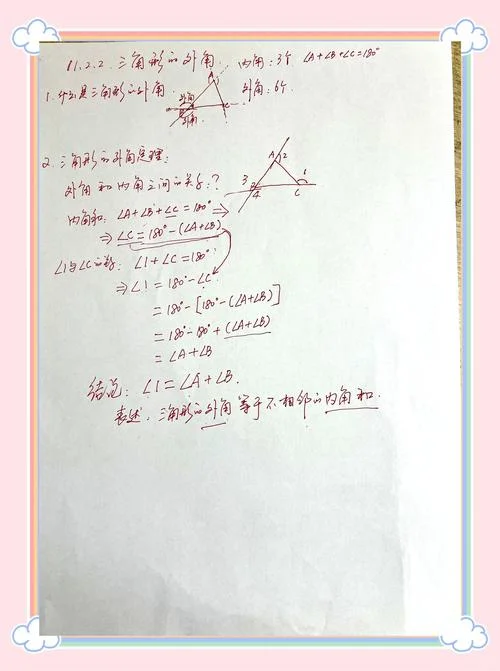 11.2.2. 三角形的外角. 内角:3个 ∠A+∠B+∠C=180°
1. 什么是三角形的外角. 外角:6个.
A
外角
B
C
外角
2. 三角形的外角定理:
外角和内角之间的关系:?
A 2
1
3
4
C
内角和: ∠A+∠B+∠C=180° ⇒
⇒ ∠C=180°-(∠A+∠B)
∠1与∠C互补: ∠1+∠C=180°
⇒∠1=180°-∠C
=180°-[180°-(∠A+∠B)]
=180°-180°+(∠A+∠B)
=∠A+∠B
结论: ∠1=∠A+∠B.
表述: 三角形的外角等于不相邻的内角和.